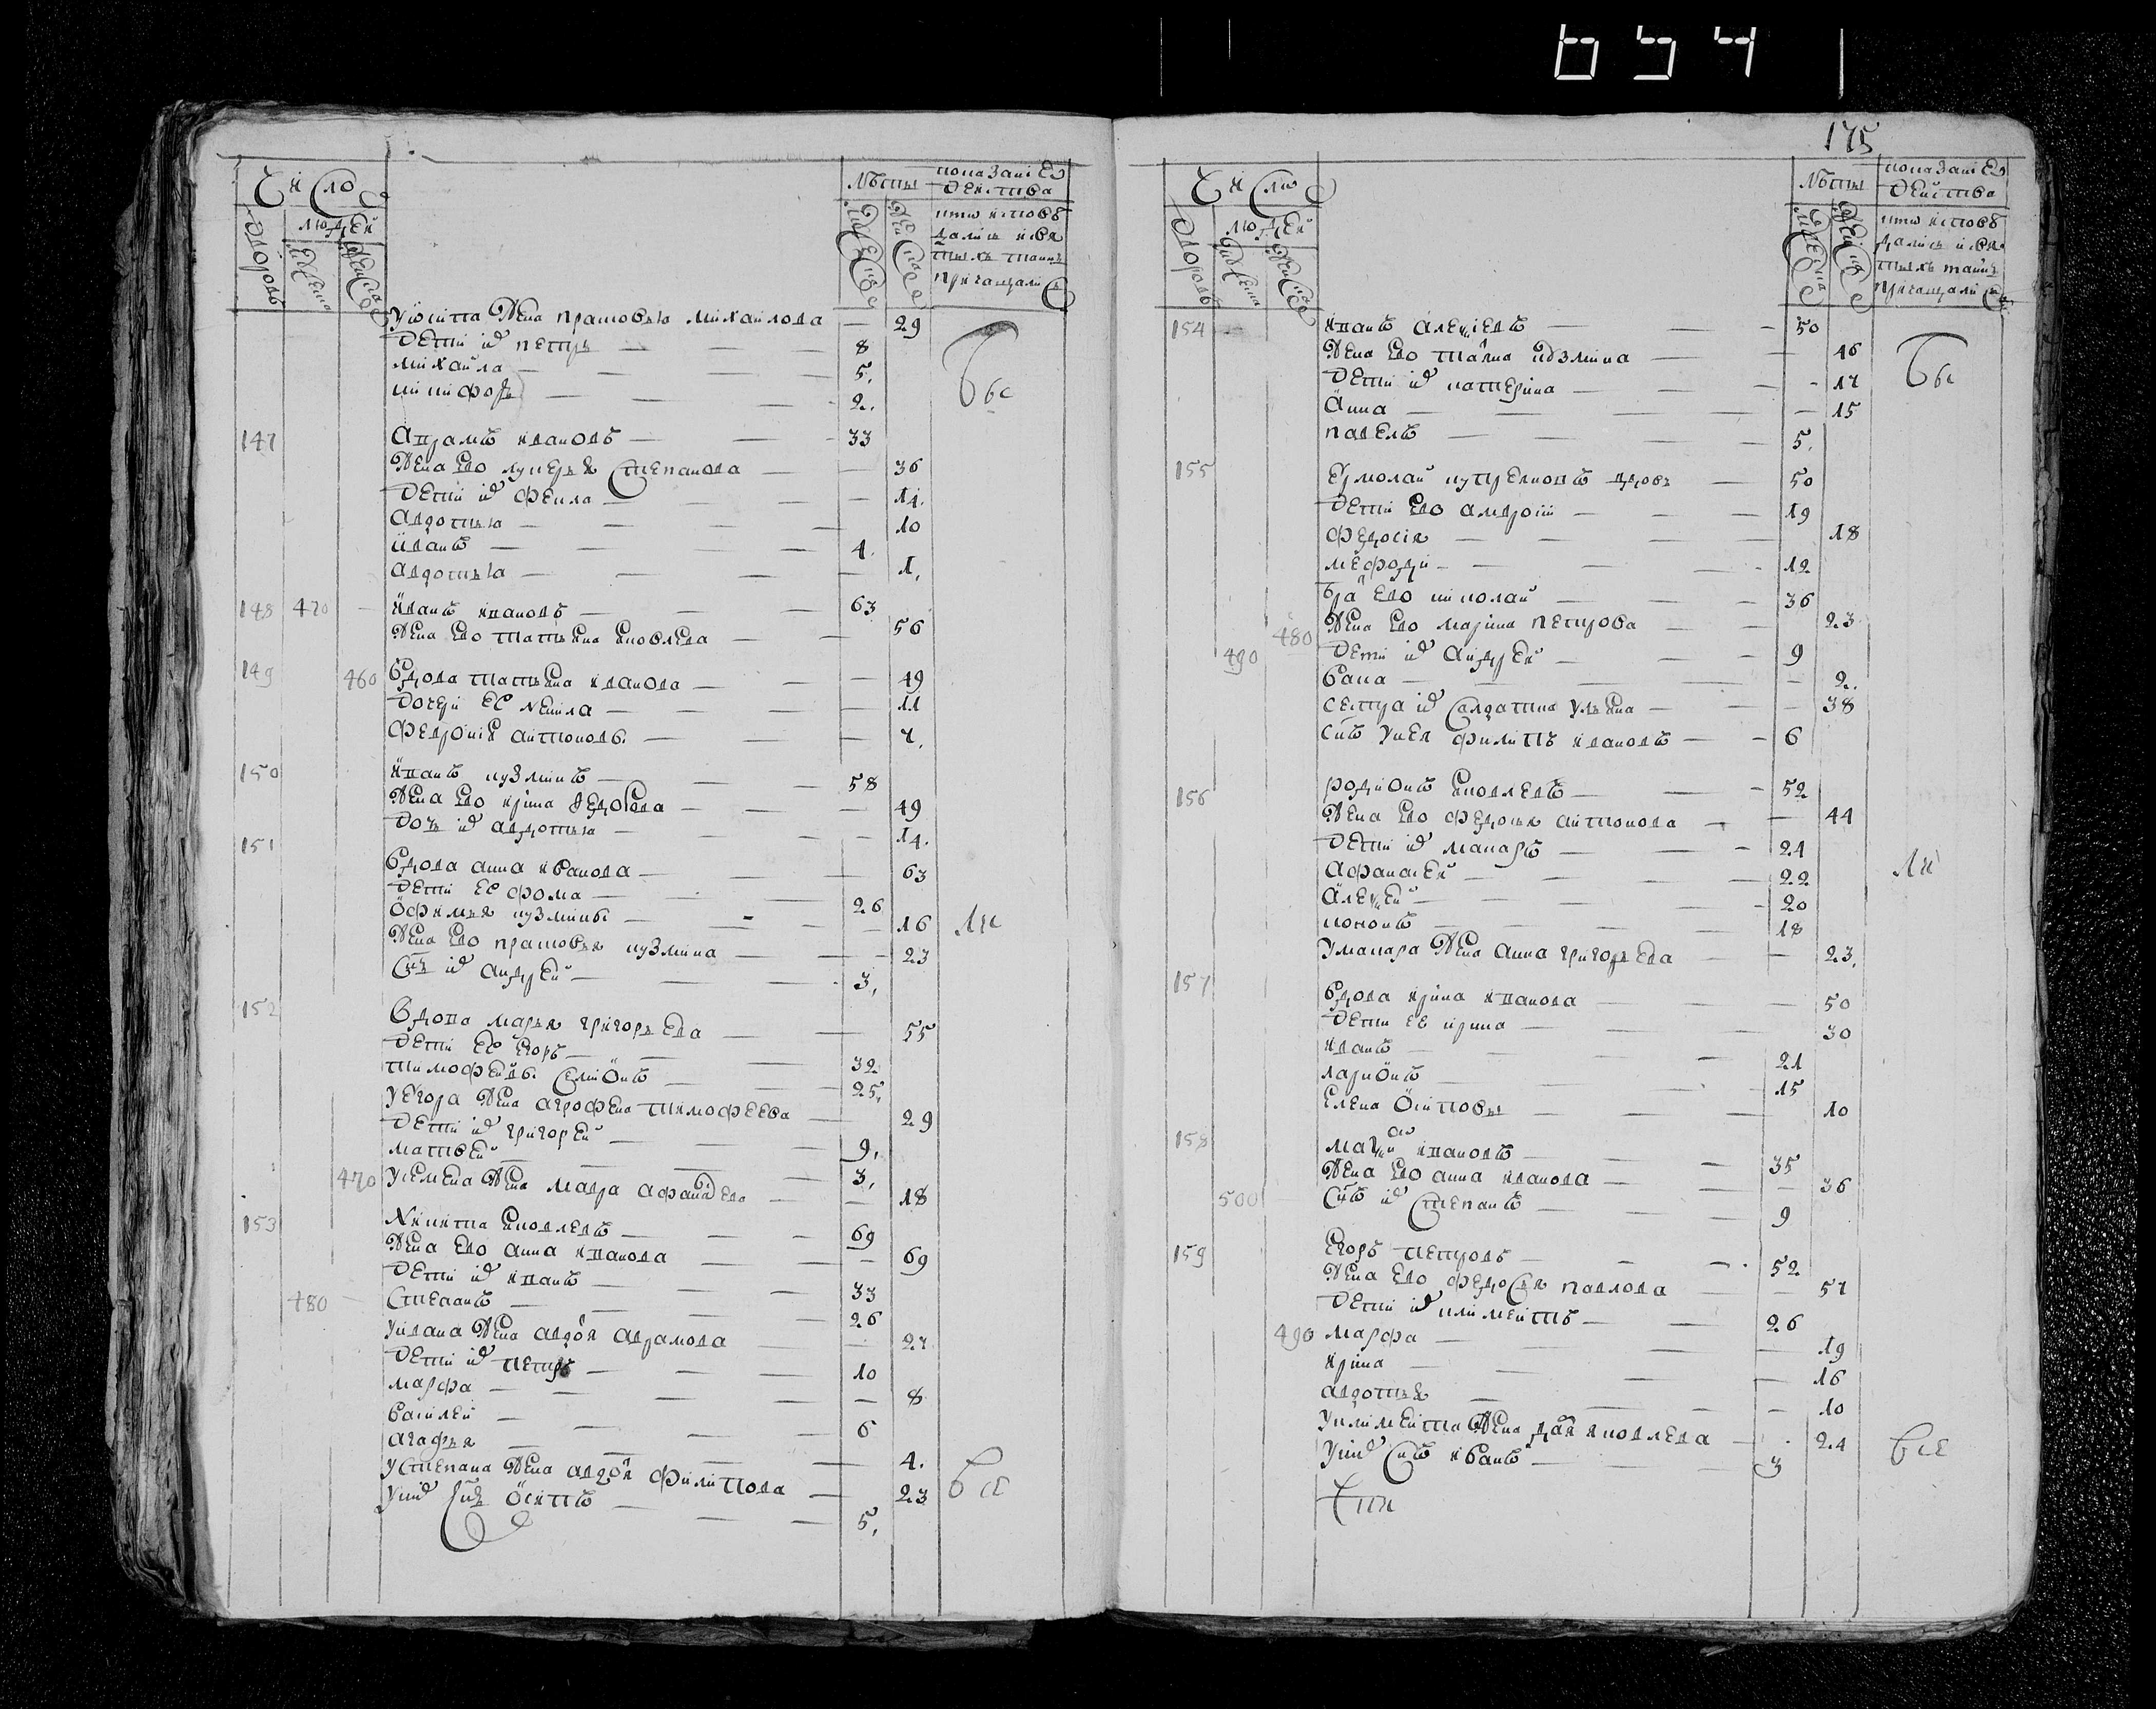 654
Число
лѣты
показаніе
действа
дворовъ
людей
мужеска
женска
кто исповѣ
дались и свя
тыхъ таинъ
причащались
женска жена прасковья михайлова 29
дети их петръ 8
михайла 5.
никифоръ 2.
Все
147 Аврамъ ивановъ 33
жена ево лукерья Степанова 36
дети их фекла 14.
Авдотья 10
иванъ 4.
авдотья 1.
148 470 иванъ ивановъ 63
жена ево татьяна яковлева 56
149 460 вдова татьяна иванова 49
дочери ее ненила 11
федосия антоновы 7.
150 иванъ кузминъ 58
жена ево ирина федорова 49
дочь их авдотья 14.
151
вдова анна иванова 63
дети ее фома 26
офимья кузмины 16
жена ево прасковья кузмина 23
Снъ их андрей 3,
152
вдова марья григорьева 55
дети ее егоръ 32
тимофеевы Семионъ 25,
у егора жена агрофена тимофеева 29
дети их григорей 9,
матвей 3,
470 у семена жена мавра афанасева 18
153 Никита яковлевъ 69
жена ево анна иванова 69
дети их иванъ 33
480 Степанъ 26
у ивана жена авдотя аврамова 27
дети их петръ 10
марфа 8
василей 6
агафья 4.
у Степана жена авдотя филипова 23
у них Снъ осипъ 5,
все
175
Число
лѣты
показаніе
действа
дворовъ
людей
мужеска
женска
кто исповѣ
дались и свя
тыхъ таинъ
причащались
154 иванъ алексѣевъ 50
жена ево татяна кузмина 46
дети их катерина 17
анна 15
павелъ 5.
Все
155 Ермолай купреяновъ вдовъ 50
дети ево амвросий 19
федосия 18
мефодий 12
братъ ево николай 36
480 жена ево марина петрова 23
490 дети их андрей 9
васа 2.
сестра их Салдатка ульяна 38
снъ у нея филипъ ивановъ 6
156 родионъ яковлевъ 52
жена ево федосья антонова 44
дети их макаръ 24
афанасей 22
алексей 20
кононъ 18
у макара жена анна григорьева 23.
157
вдова ирина иванова 50
дети ее ирина 30
иванъ 21
ларионъ 15
елена осиповы 10
158
ивановъ 35
жена ево анна иванова 36
500 Снъ их Степанъ 9
159 Егоръ петровъ 52
жена ево федосья павлова 51
дети их климентъ 26
490 марфа 19
ирина 16
авдотья 10
у климента жена дарья яковлева 24
у них Снъ иванъ 3
все